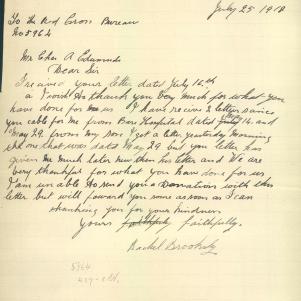 July 25 1918
To the Red Cross Bureau
No 5964
Mr Chas A Edmunds
Dear Sir
I received your letter dated July 16th
I wish to thank you very much for what you
have done for us I have receive 2 letters since
you cable for me from Base Hospital dated 14 and
May 29 from my son I got a letter yesterday morning
the one that was dated May 29 but your letter has
given me much later news then his letter and We are
very thankful for what you have done for us
I am unable to send you a Donations with this
letter but will foward you some as soon as I can
thanking you for your kindness
Yours faithfully faithfully.
Rachel Brodsky
5964